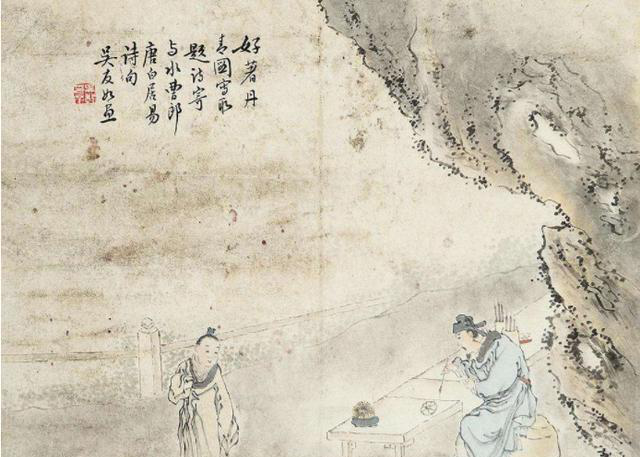 好著丹
青圖寫取
題詩寄
与水曹郎
唐白居易
詩句
吳友如画